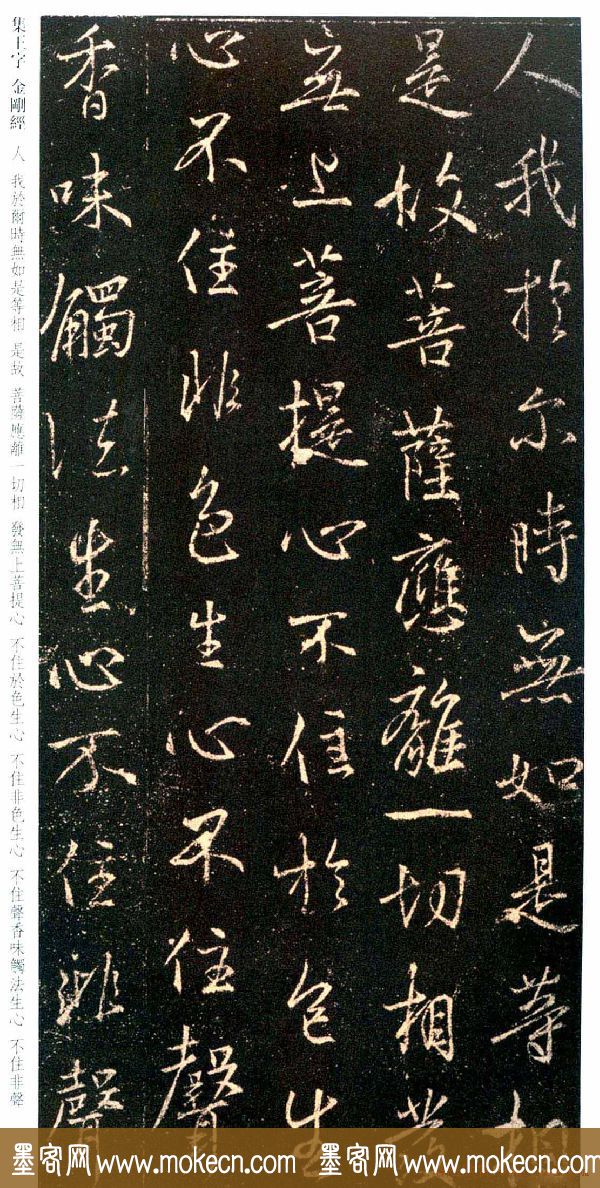 人我於尔時無如是等相
是故菩薩應離一切相發
無上菩提心不住於色生
心不住非色生心不住聲
香味觸法生心不住非聲
集王字 金剛經 人 我於爾時無如是等相 是故 菩薩應離一切相 發無上菩提心 不住於色生心 不住非色生心 不住聲香味觸法生心 不住非聲
墨客网 www.mokecn.com 墨客网 www.mokecn.com